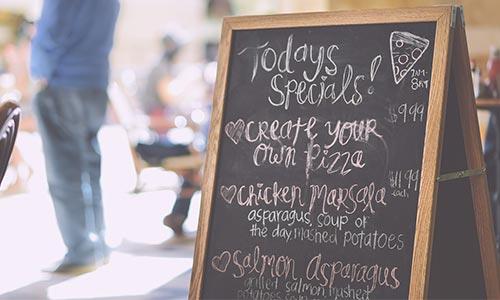 Todays
Specials!
7AM-
8PM
$9.99
Create Your
Own Pizza
Chicken Marsala
$11.99
each
asparagus, soup of
the day, mashed potatoes
Salmon Asparagus
grilled salmon mashed
potatoes soup